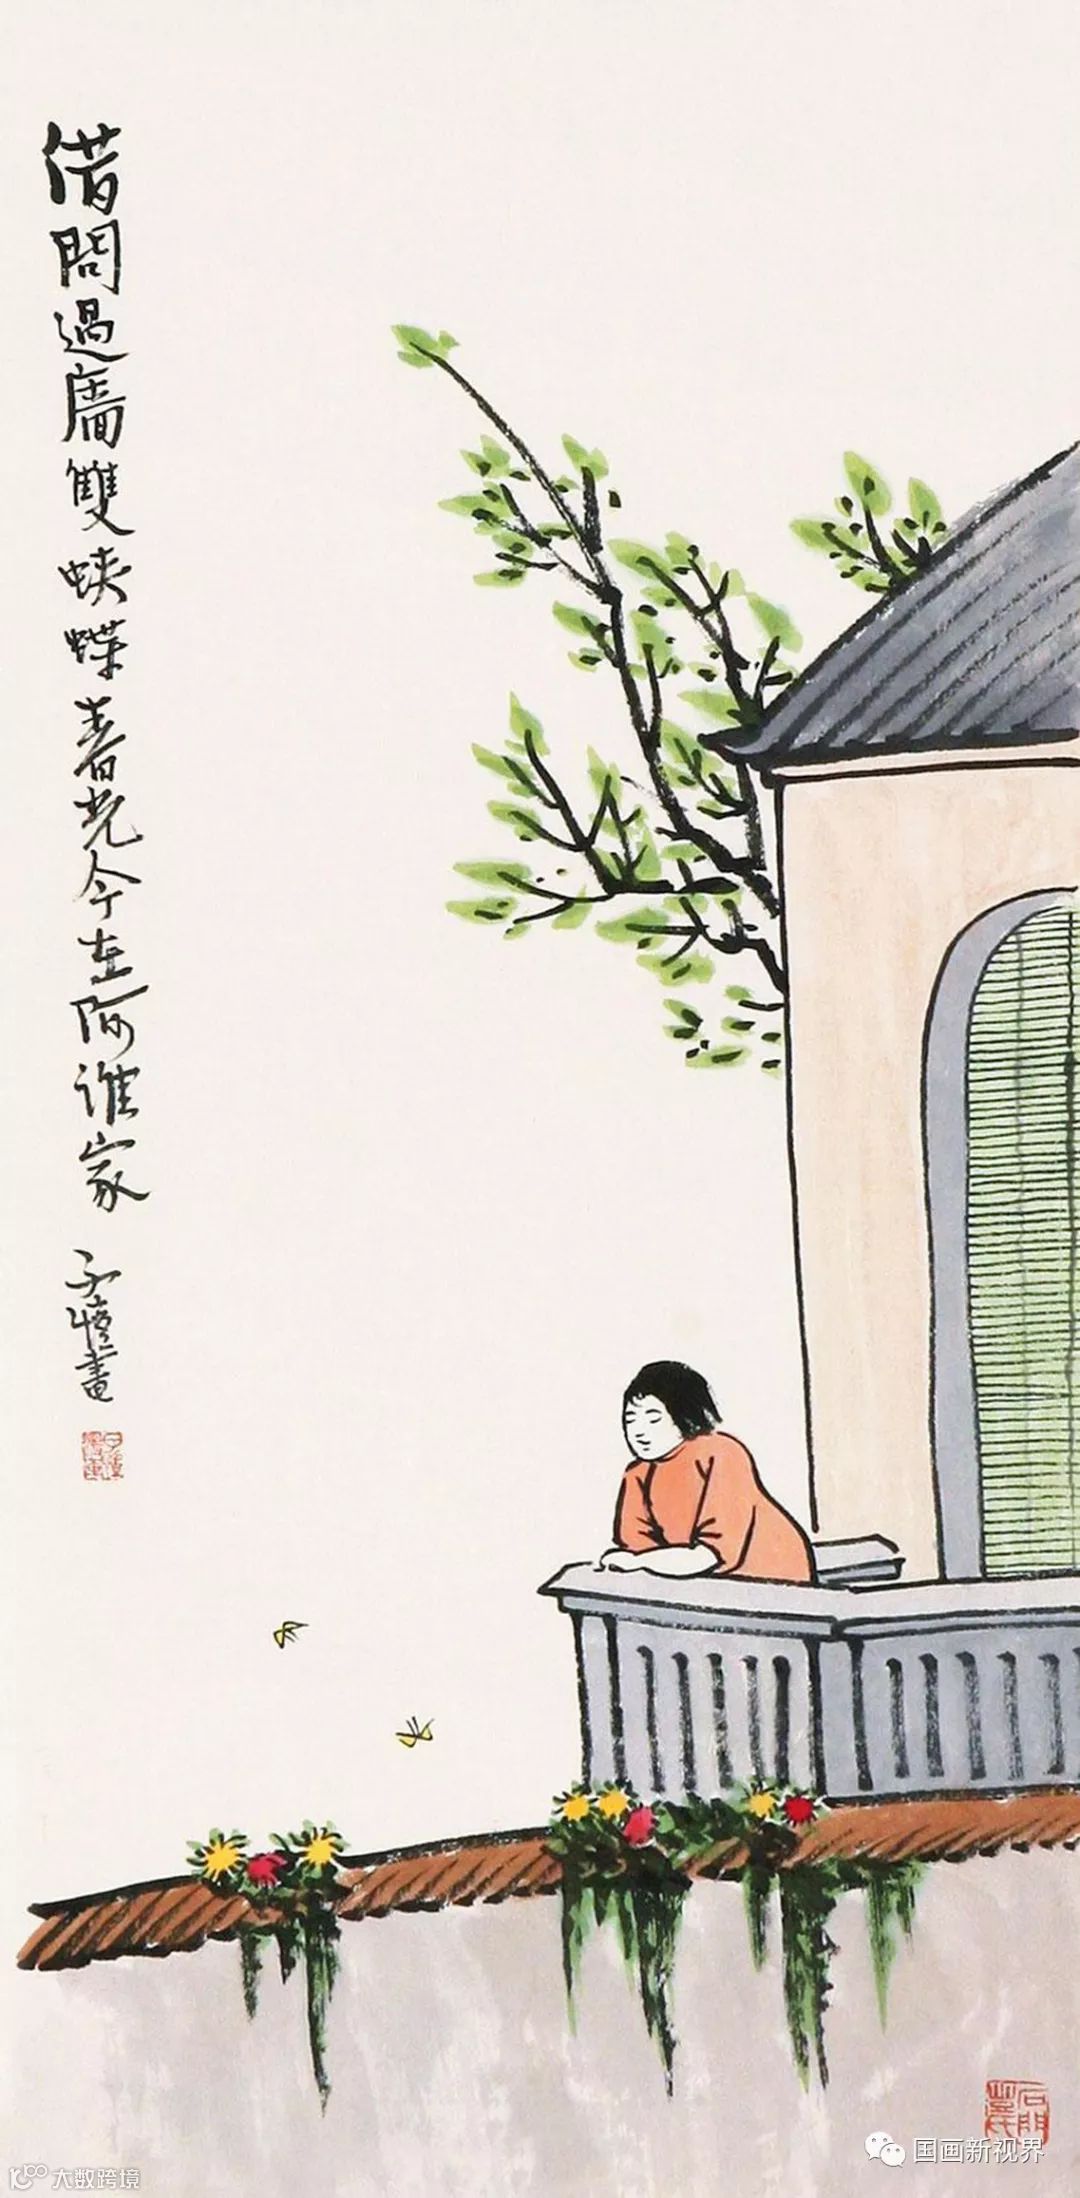 借問過牆雙蛺蝶春光今在阿誰家
子愷畫
石門豐氏
国画新视界
大数跨境